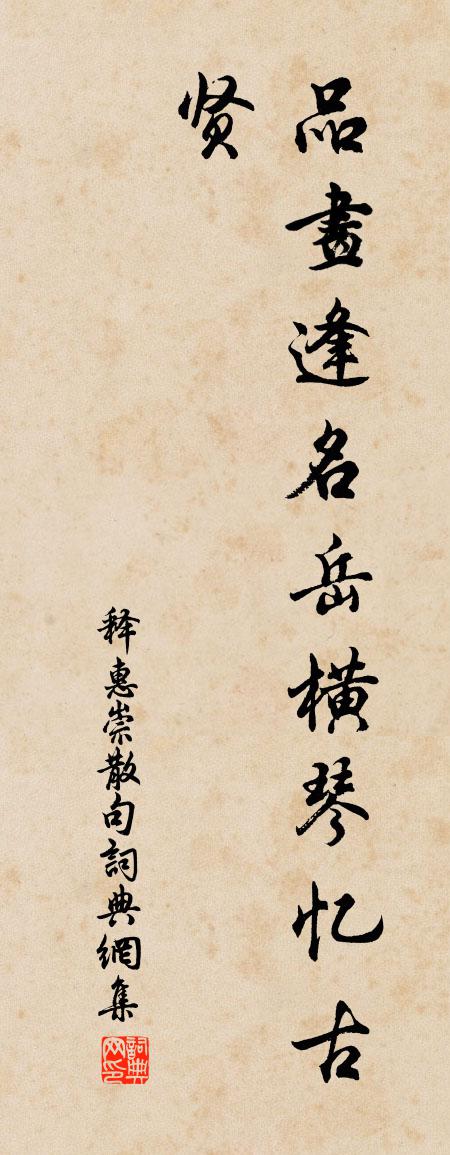 品畫逢名岳横琴忆古
贤
释惠崇散句詞典網集
詞典
网印